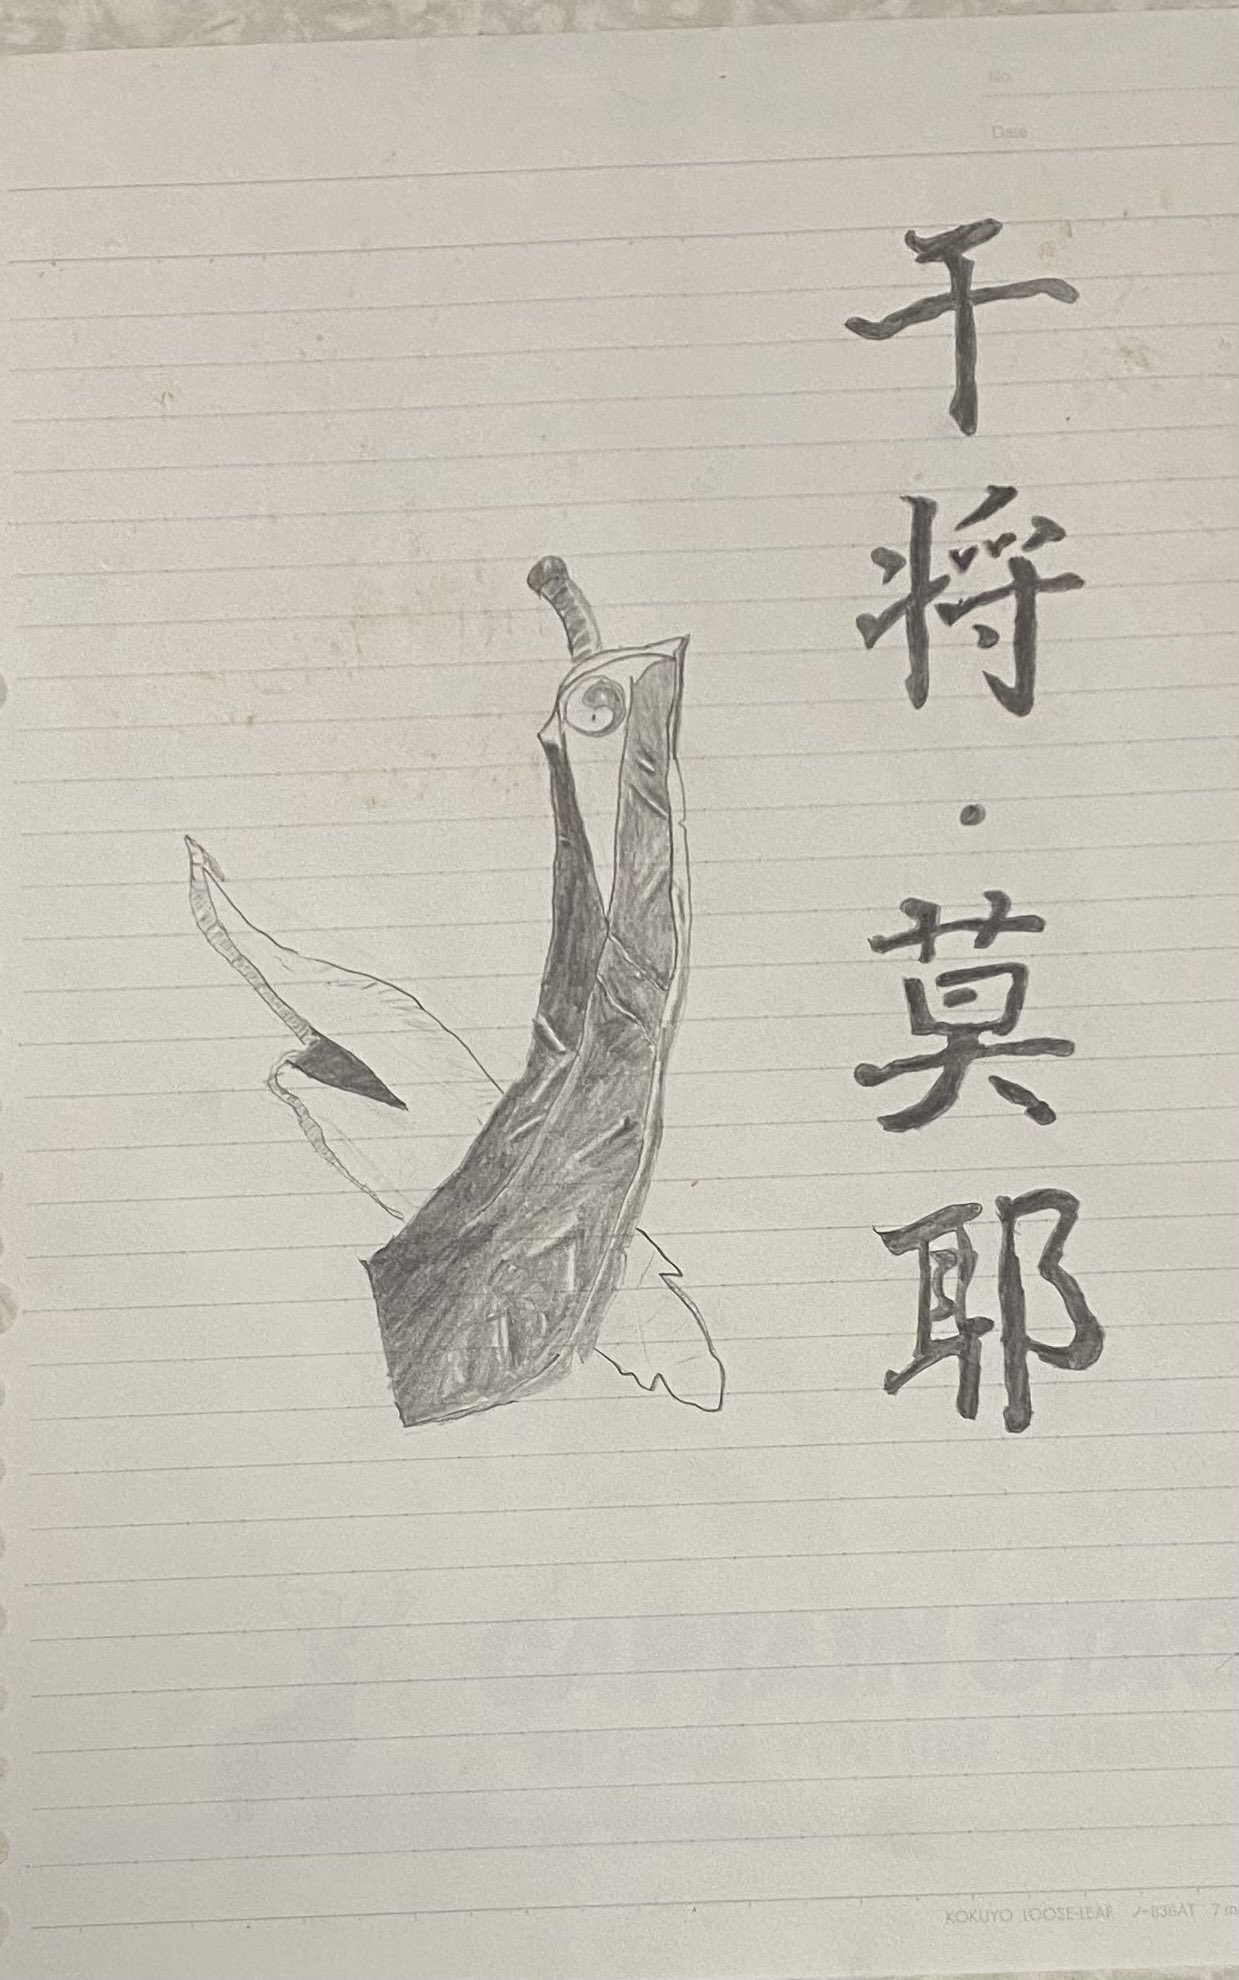 No.
Date
干将·莫耶
KOKUYO LOOSE-LEAF ノ-836AT 7m